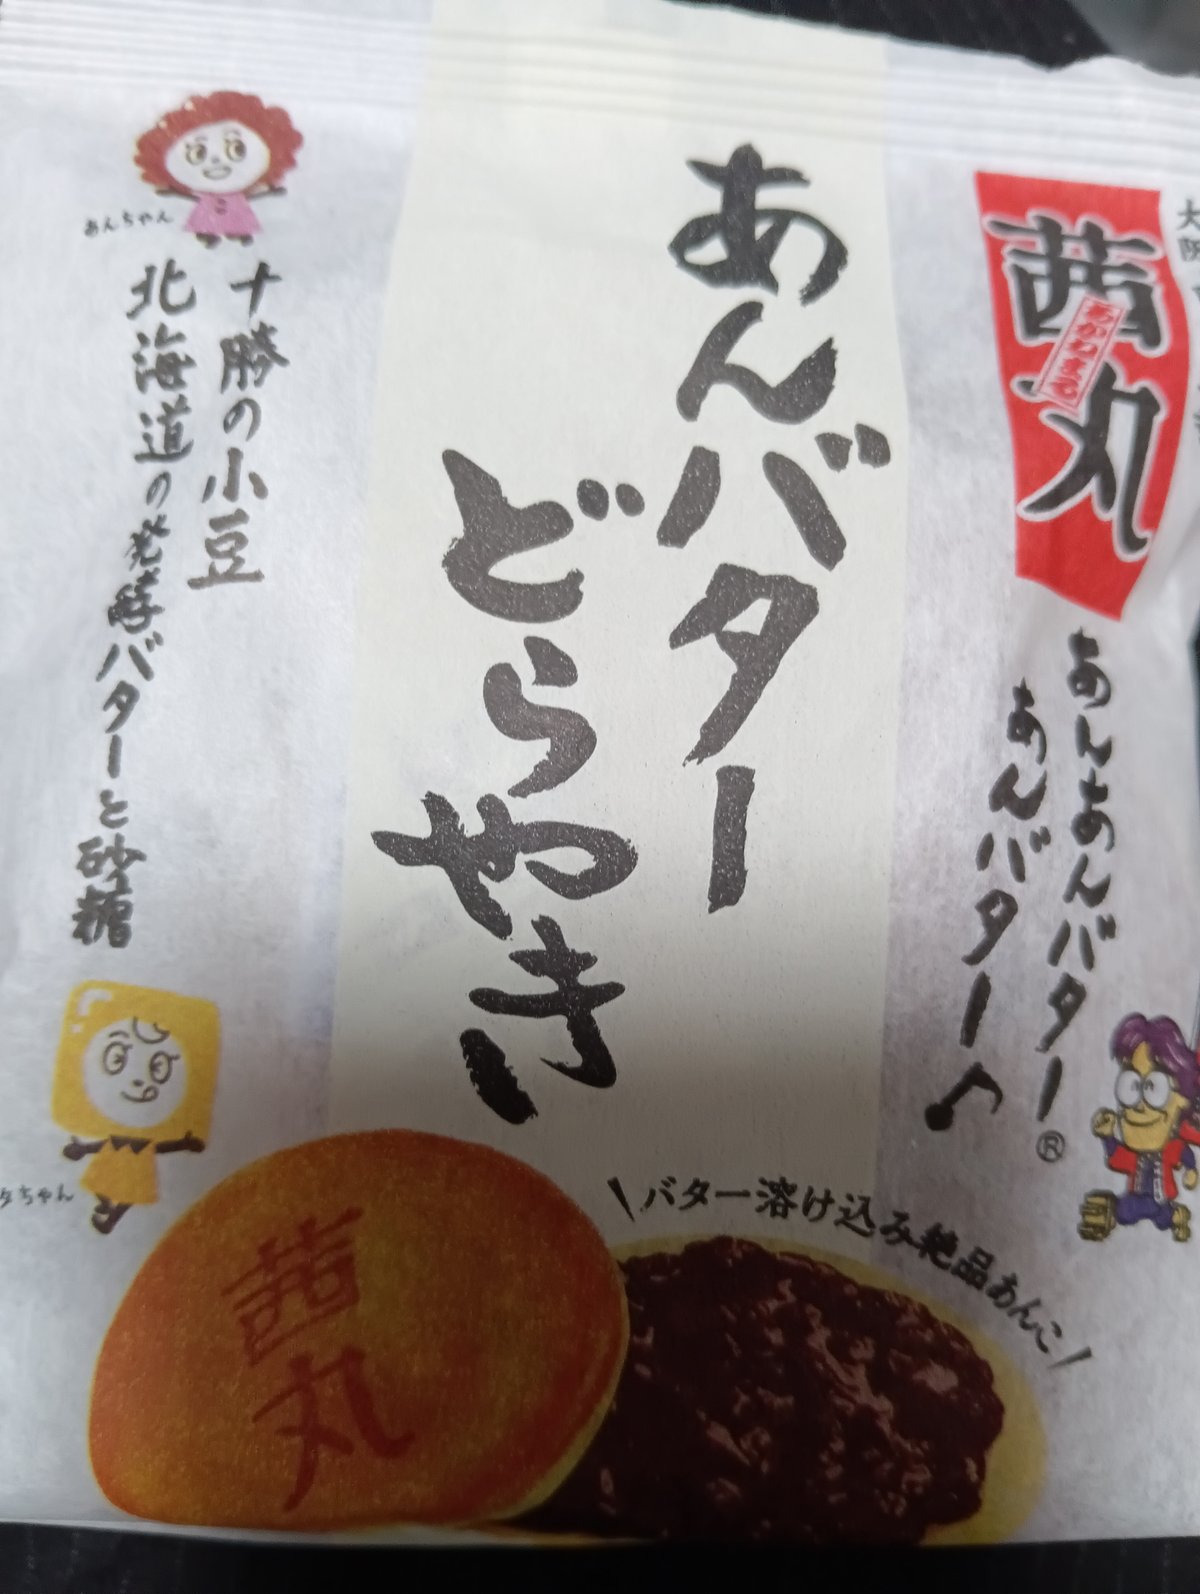 大阪
茜丸
あかねまる
あんあんバター®
あんバター♪
あんバター
どらやき
あんちゃん
十勝の小豆
北海道の発酵バターと砂糖
タちゃん
バター溶け込み絶品あんこ
茜丸